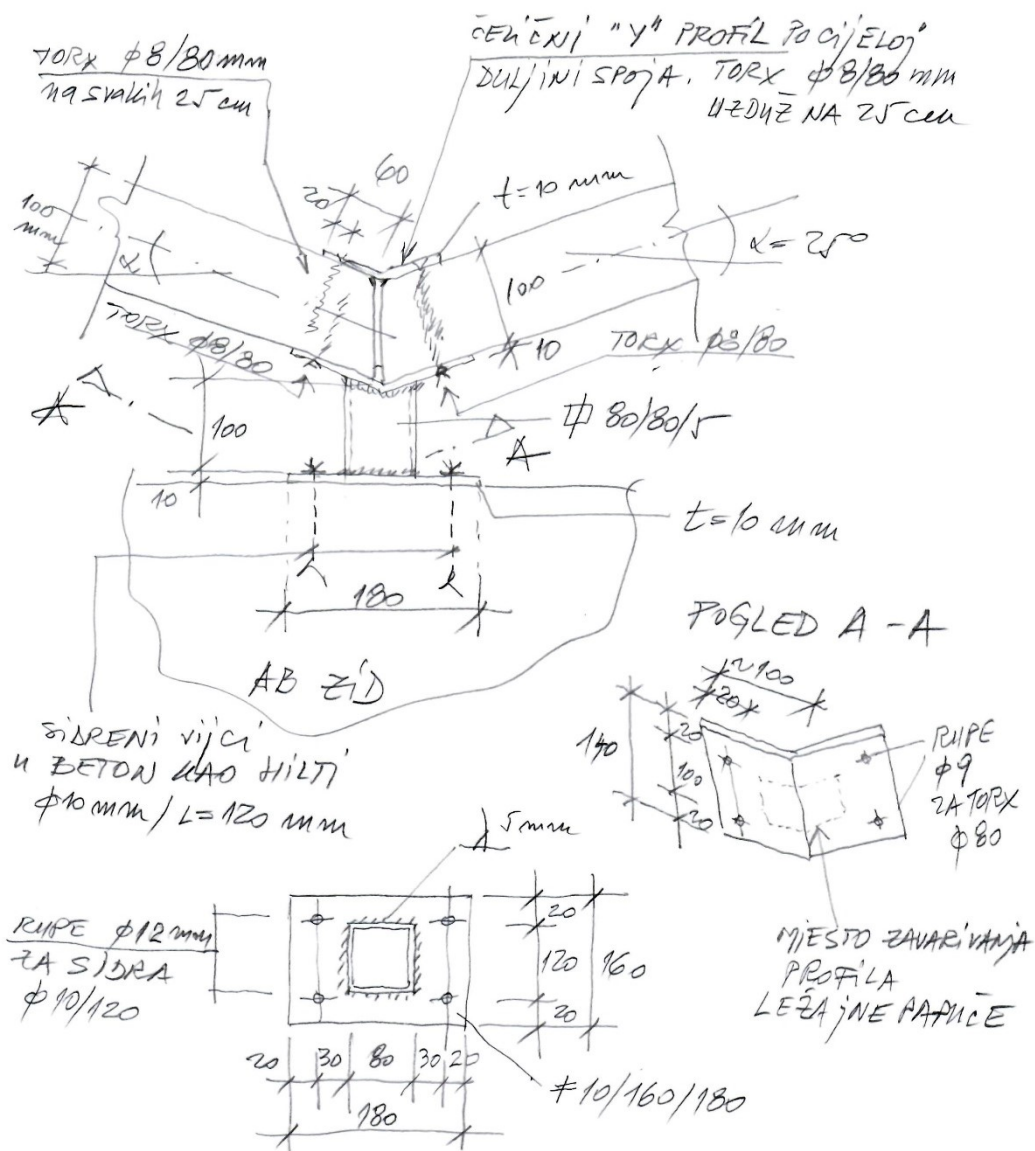 TORX φ8/80mm
na svakih 25 cm
ČELIČNI "Y" PROFIL PO CIJELOJ
DULJINI SPOJA. TORX φ8/80 mm
UZDUŽ NA 25 cm
60
20
t=10 mm
100
mm
α
α=25°
100
10
TORX φ8/80
TORX φ8/80
A
100
# 80/80/5
A
10
t=10 mm
180
AB ZID
SIDRENI VIJCI
U BETON KAO HILTI
φ10mm / L=120 mm
POGLED A-A
~100
20
140
20
100
20
RUPE
φ9
ZA TORX
φ80
MJESTO ZAVARIVANJA
PROFILA
LEŽAJNE PAPUČE
5mm
RUPE φ12mm
ZA SIDRA
φ10/120
20
120
160
20
20 30 80 30 20
180
≠10/160/180